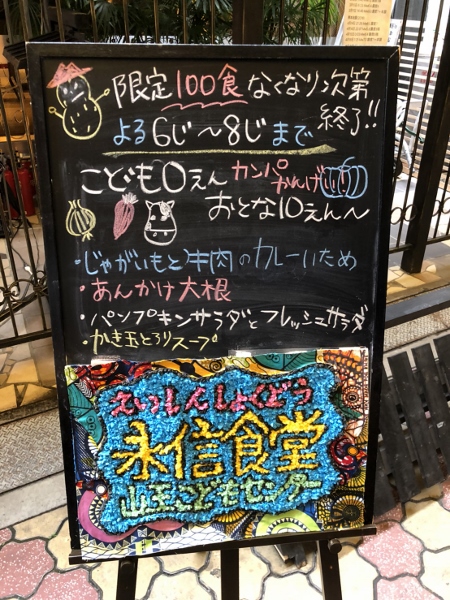 限定100食 なくなり次第
終了!!
よる6じ〜8じまで
こども0えん カンパ
おんげい!!
おとな10えん〜
・じゃがいもと牛肉のカレーいため
・あんかけ大根
・パンプキンサラダとフレッシュサラダ
・かき玉とろりスープ
えいしんしょくどう
永信食堂
山王こどもセンター